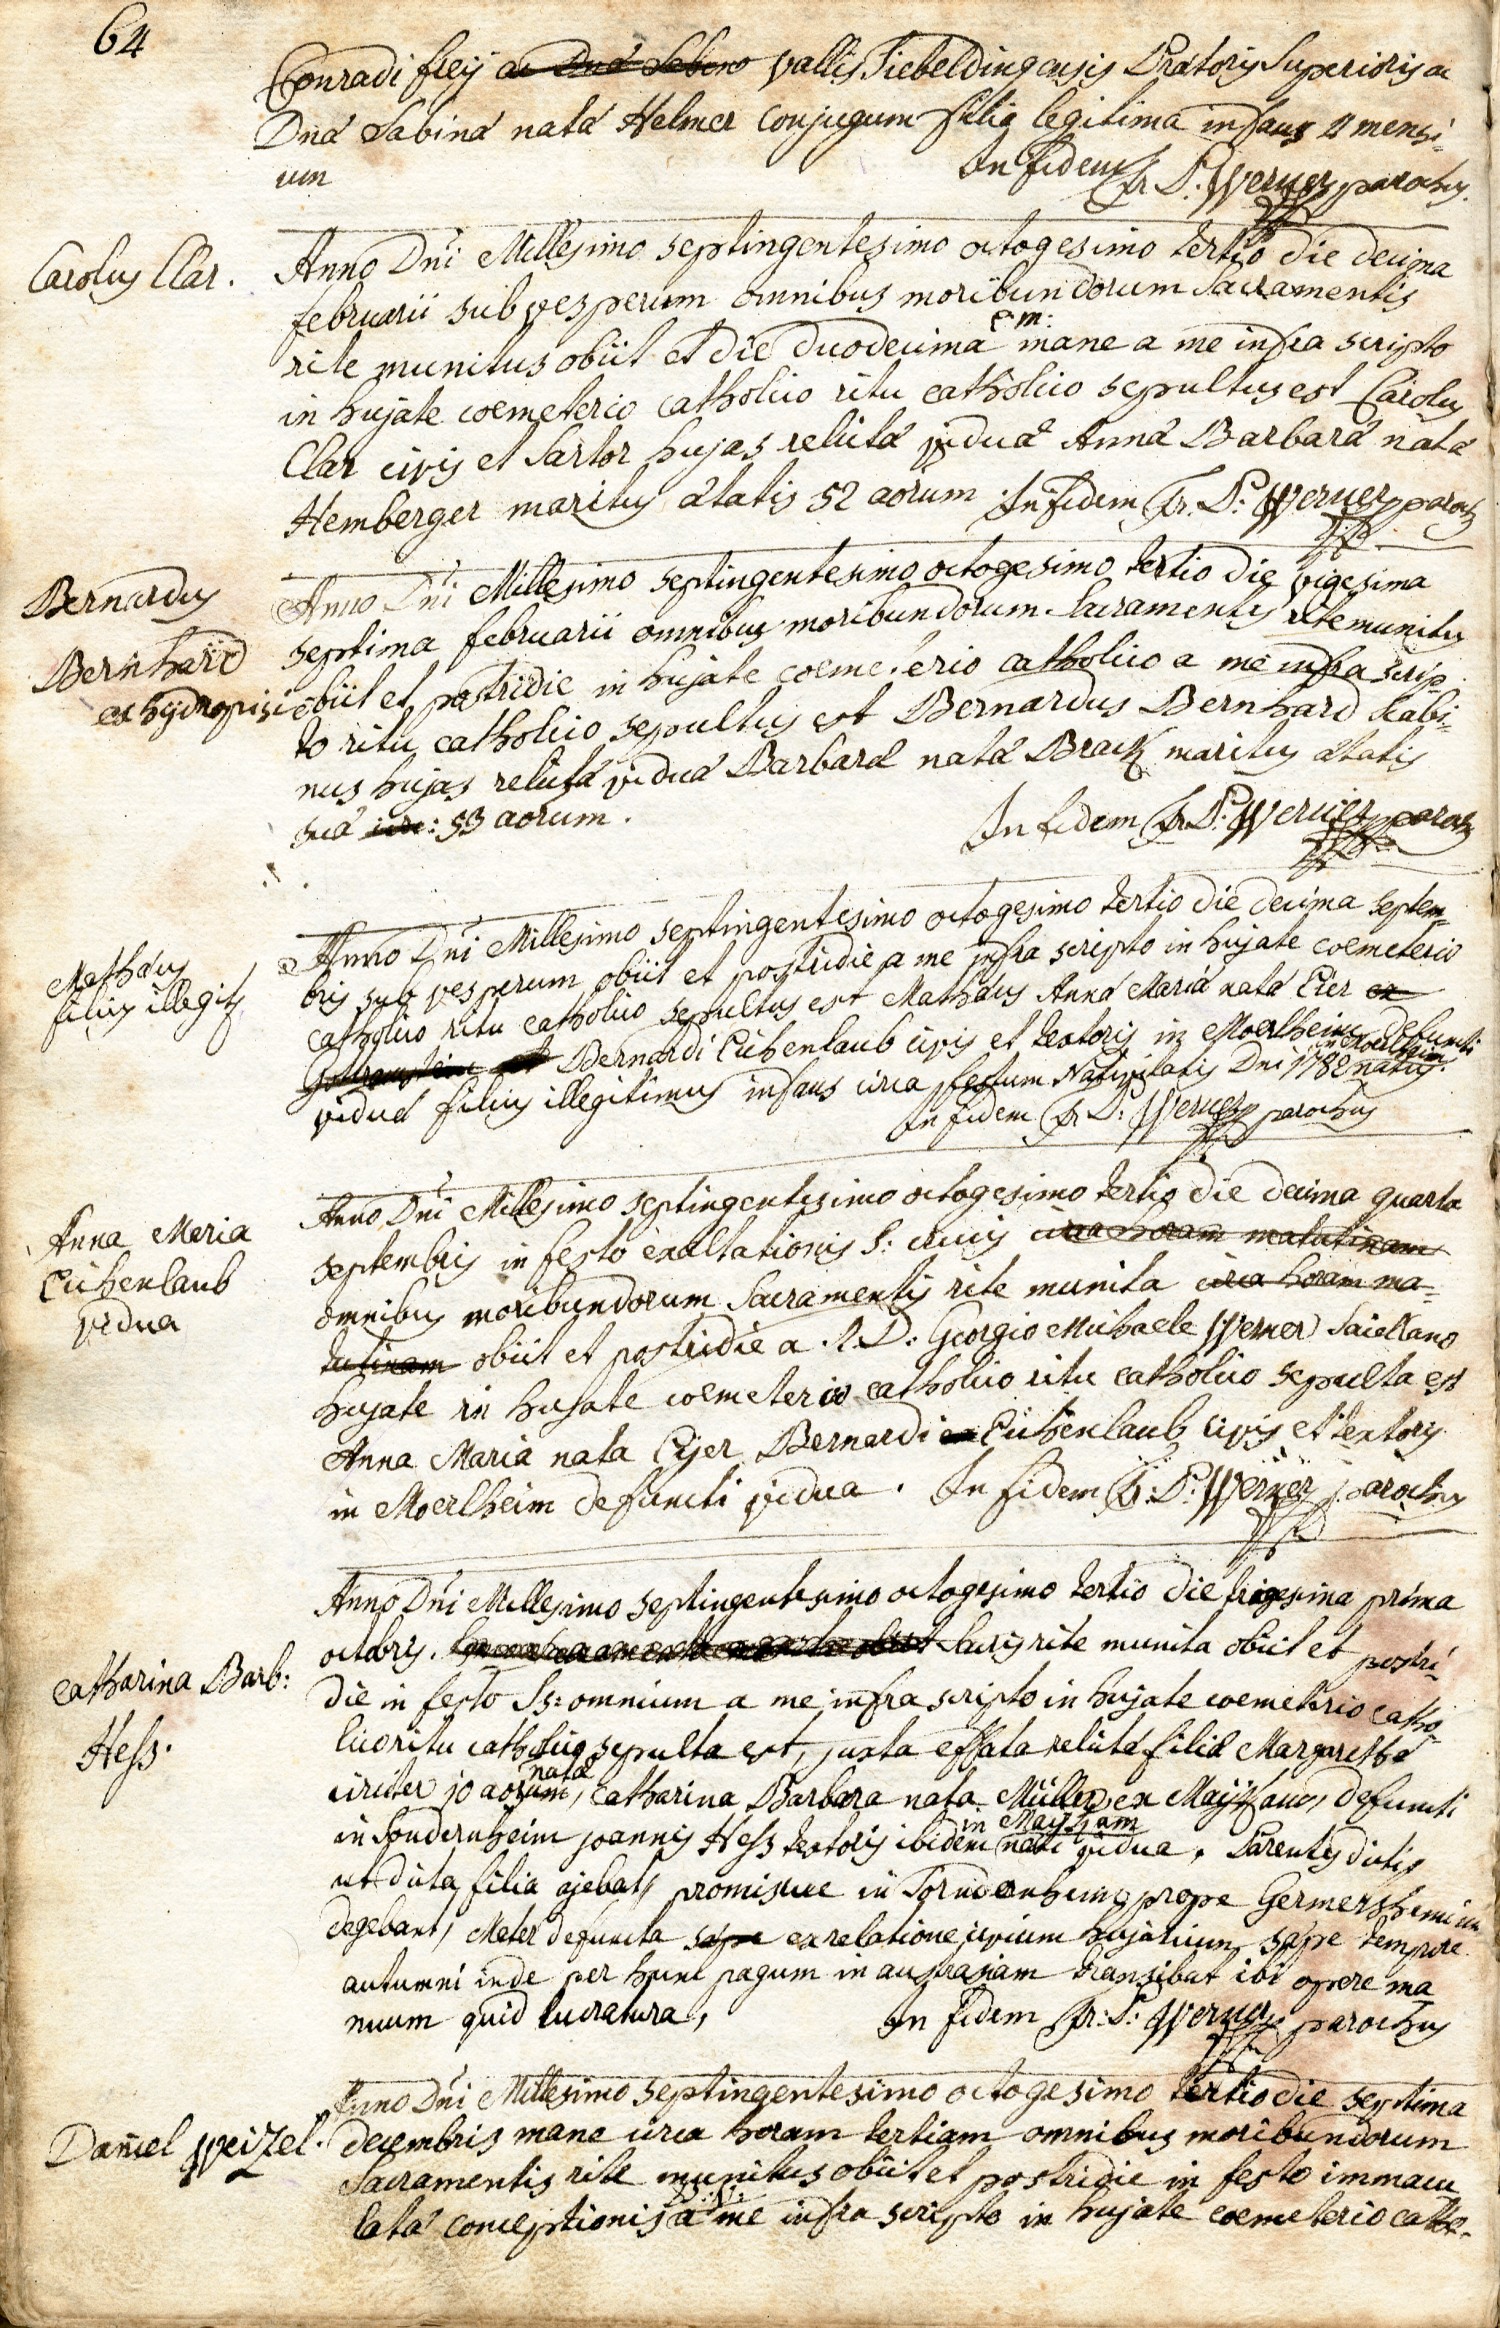 64
Conradi fleÿ ac Dnã Sabina vallis Siebeldingensis Prætoris Superioris ac
Dnã Sabinã natã Helmer conjugum filia legitima infans 4 mensi-
um In fidem Fr. P: Werner parochus.
Carolus Clar.
Anno Dni Millesimo septingentesimo octogesimo tertio die decima
februarii sub vesperum omnibus moribundorum Sacramentis
e. m:
rite munitus obiit et die duodecima mane a me infra scripto
in hujate coemeterio catholico ritu catholico sepultus est Carolus
Clar civis et Sartor hujas relictæ viduæ Annæ Barbaræ natæ
Hemberger maritus ætatis 52 aorum. In fidem Fr. P: Werner paroch
Bernardus
Bernhard
ex hydropisi
Anno Dni Millesimo septingentesimo octogesimo tertio die vigesima
septima februarii omnibus moribundorum Sacramentis rite munitus
obiit et postridie in hujate coemeterio catholico a me infra scrip-
to ritu catholico sepultus est Bernardus Bernhard scabi-
nus hujas relictæ viduæ Barbaræ natæ Brack maritus ætatis
suæ circ: 53 aorum.
In fidem Fr. P: Werner paroch
Mathæus
filius illegits
Anno Dni Millesimo septingentesimo octogesimo tertio die decima septem-
bris sub vesperum obiit et postridie a me infra scripto in hujate coemeterio
catholico ritu catholico sepultus est Mathæus Annæ Mariæ natæ Eier ex
Bernardi Eichenlaub civis et textoris in Moerlheim defuncti
in Moerlheim
viduæ filius illegitimus infans circa festum Nativitatis Dni 1782 natus.
In fidem Fr. P: Werner parochus
Anna Maria
Eichenlaub
vidua
Anno Dni Millesimo septingentesimo octogesimo tertio die decima quarta
septembris in festo exaltationis S: crucis circa horam matutinam
omnibus moribundorum Sacramentis rite munita circa horam ma-
tutinam obiit et postridie a .R.D: Georgio Michaele Werner Sacellano
hujate in hujate coemeterio catholico ritu catholico sepulta est
Anna Maria nata Eijer Bernardi Eichenlaub civis et textoris
in Moerlheim defuncti vidua. In fidem Fr: P: Werner parochus
Catharina Barb:
Hess.
Anno Dni Millesimo septingentesimo octogesimo tertio die trigesima prima
octobris. Sacris rite munita obiit et postri-
die in festo Ss: omnium a me infra scripto in hujate coemeterio catho-
lico ritu catholico sepulta est, juxta effata relictæ filiæ Margarethæ
nata
circiter 30 aorum, Catharina Barbara nata Müller ex defuncti
in
in Sondernheim joannis Hess textoris ibidem nati vidua, Parentes dictis
ut dicta filia ajebat, promiscue in Sondernheim prope Germershemium
degebant, Mater defuncta sæpe ex relatione civium hujatium sæpe tempore
autumni inde per hunc pagum in austrasiam transibat ibi opere ma
nuum quid lucratura, In fidem Fr: P: Werner parochus
Daniel Weizel.
Anno Dni Millesimo septingentesimo octogesimo tertio die septima
decembris mane circa horam tertiam omnibus moribundorum
Sacramentis rite munitus obiit et postridie in festo immacu
B: V:
latæ conceptionis a me infra scripto in hujate coemeterio catho-